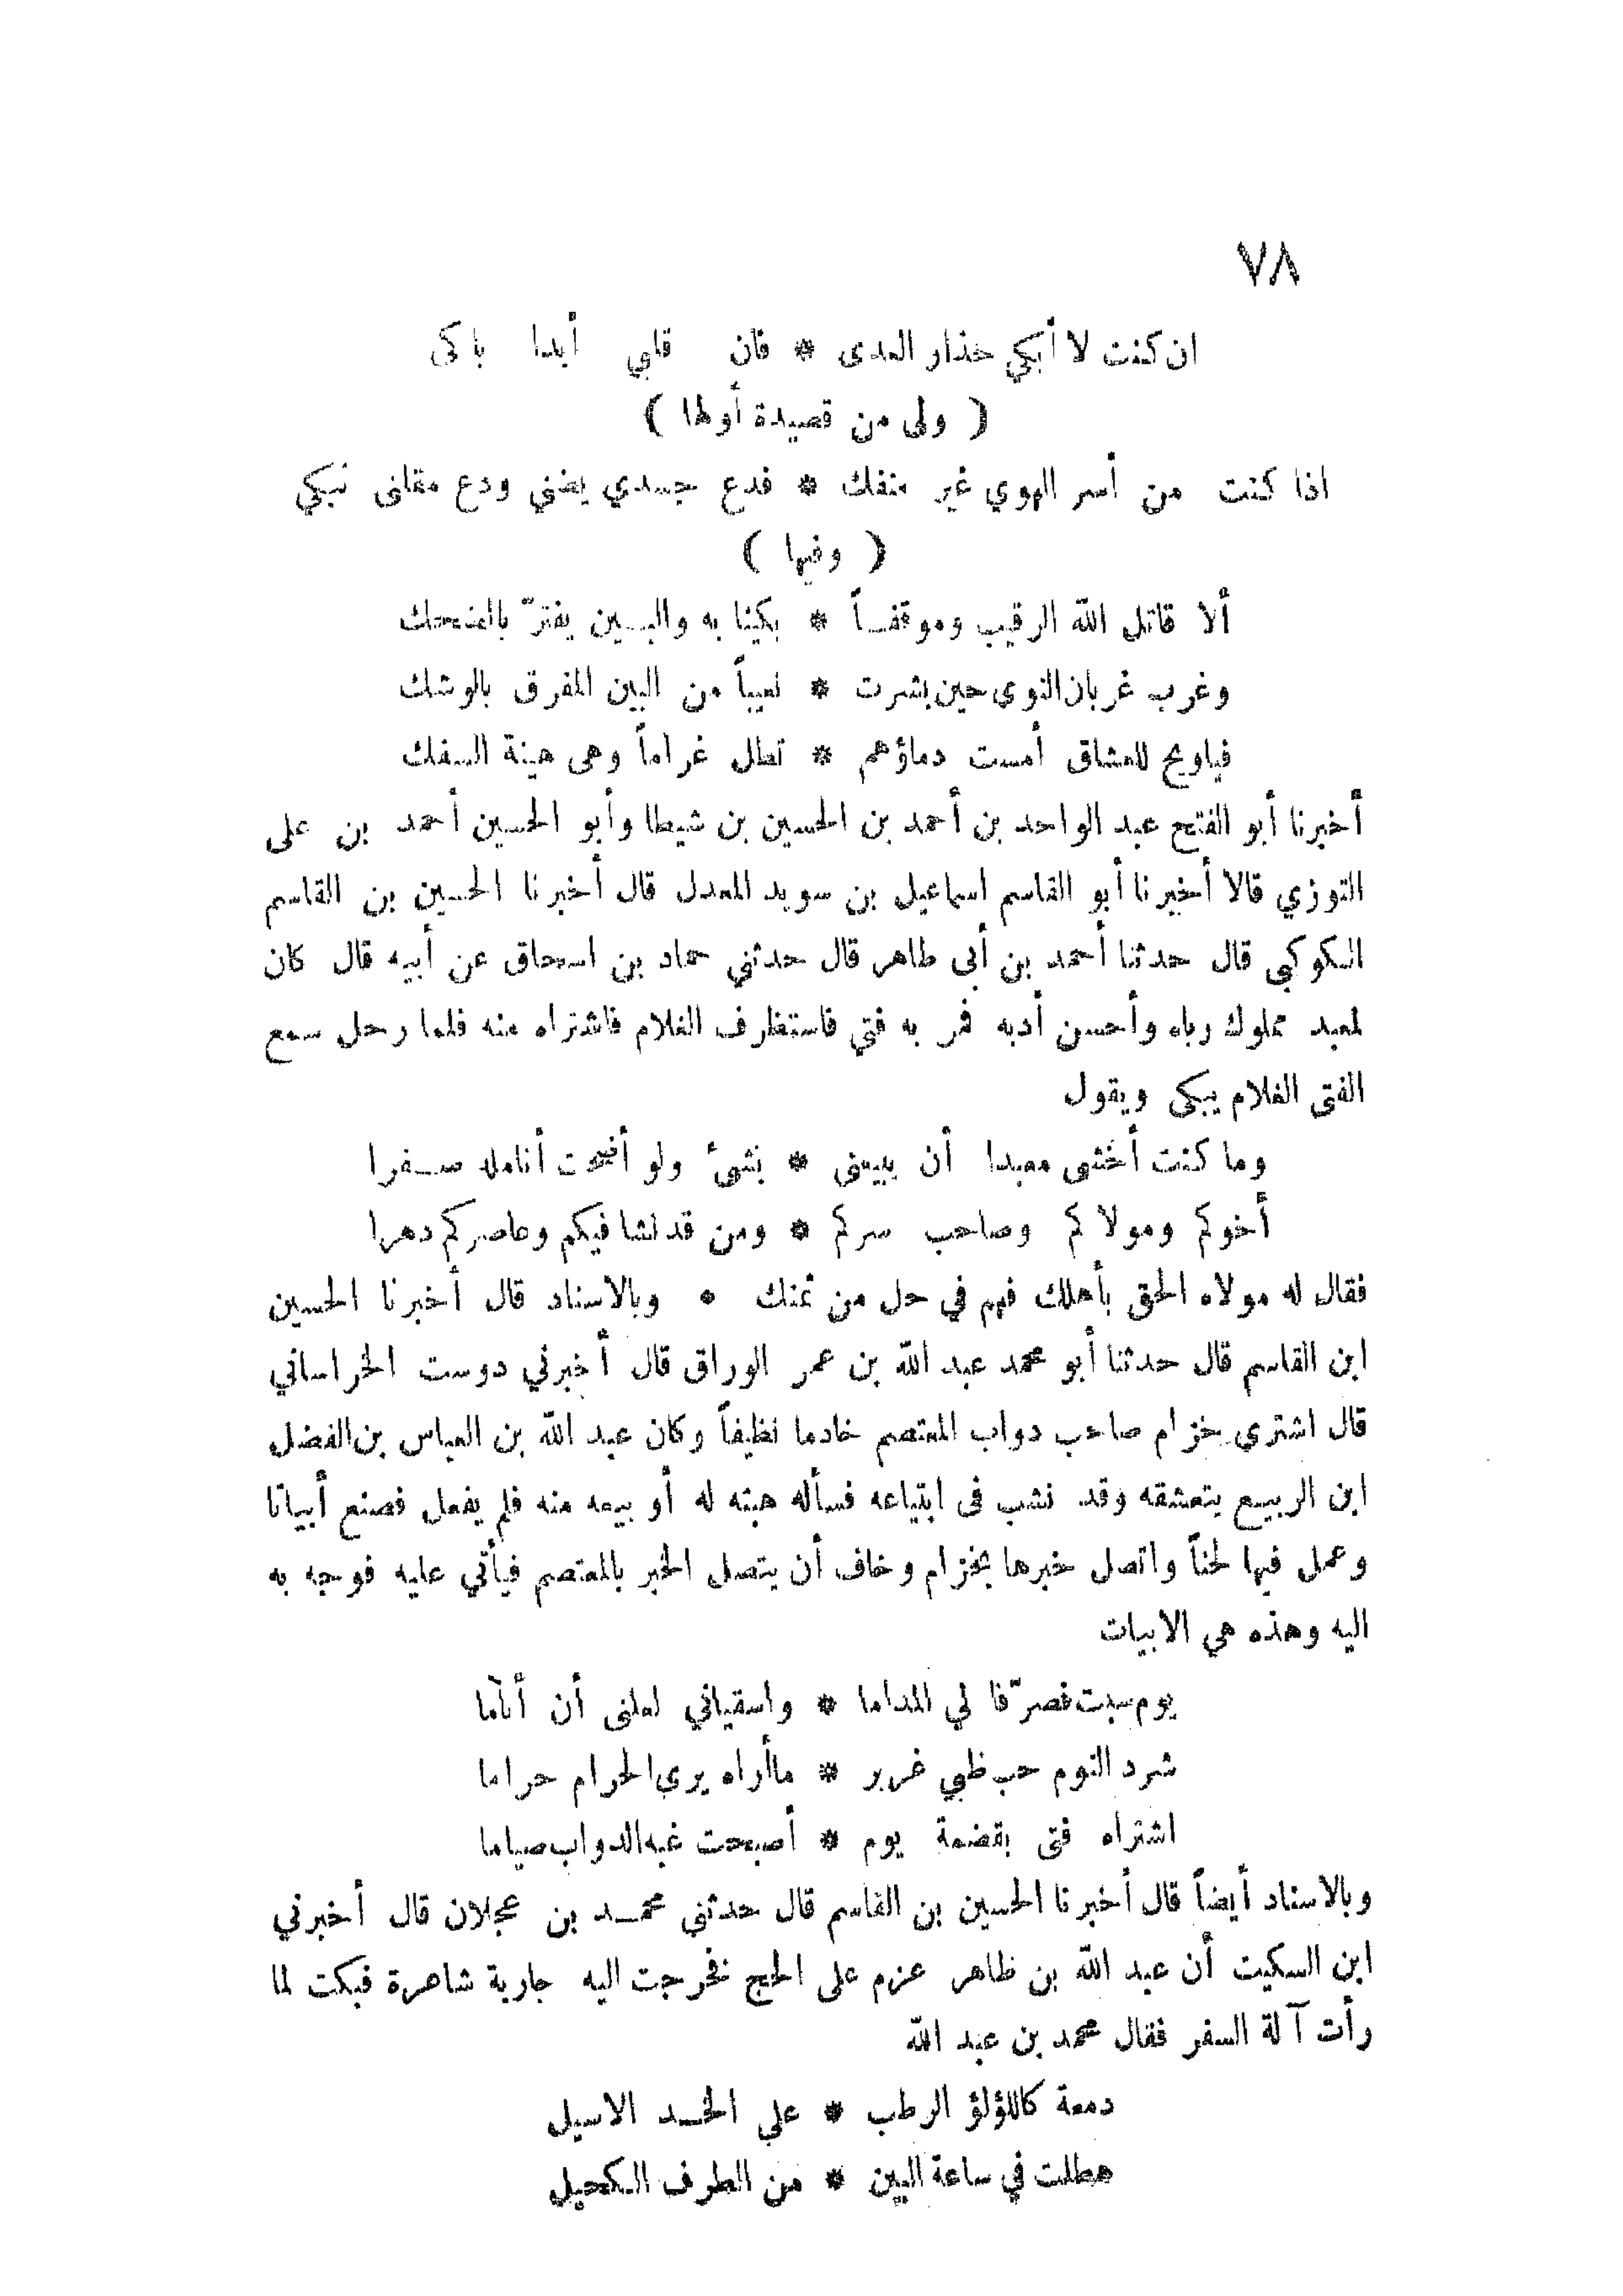 ٧٨
ان كنت لا أبكي حذار العدى * فان قلبي أبدا باكى
( ولى من قصيدة أولها )
اذا كنت من أسر الهوي غير منفك * فدع جسدي يضني ودع مقلتى تبكي
( وفيها )
ألا قاتل الله الرقيب وموقفـاً * بكينا به والبـين يفترّ بالضحك
وغرب غربان النوى حين بشرت * نعيباً من البين المفرق بالوشك
فياويح للعشاق أمست دماؤهم * تطل غراماً وهى هينة السفك
أخبرنا أبو الفتح عبد الواحد بن أحمد بن الحسين بن شيطا وأبو الحسين أحمد بن على
التوزي قالا أخبرنا أبو القاسم اسماعيل بن سويد المعدل قال أخبرنا الحسين بن القاسم
الكوكبي قال حدثنا أحمد بن أبى طاهر قال حدثني حماد بن اسحاق عن أبيه قال كان
لمعبد مملوك رباه وأحسن أدبه فمر به فتي فاستظرف الغلام فاشتراه منه فلما رحل سمع
الفتى الغلام يبكى ويقول
وما كنت أخشى معبدا أن يبيعنى * بشئ ولو أضحت أنامله صـفرا
أخوكم ومولاكم وصاحب سركم * ومن قد نشا فيكم وعاصركم دهرا
فقال له مولاه الحق بأهلك فهم في حل من ثمنك • وبالاسناد قال أخبرنا الحسين
ابن القاسم قال حدثنا أبو محمد عبد الله بن عمر الوراق قال أخبرني دوست الخراساني
قال اشترى خزام صاحب دواب المعتصم خادما نظيفاً وكان عبد الله بن العباس بن الفضل
ابن الربيـع يتعشقه وقد نشب فى ابتياعه فسأله هبته له أو بيعه منه فلم يفعل فصنع أبياتا
وعمل فيها لحناً واتصل خبرها بخزام وخاف أن يتصل الخبر بالمعتصم فيأتي عليه فوجه به
اليه وهذه هي الابيات
يوم سبت فصرّفا لي المداما * واسقياني لعلنى أن أناما
شرد النوم حب ظبي غرير * ماأراه يرى الحرام حراما
اشتراه فتى بقضمة يوم * أصبحت غبه الدواب صياما
وبالاسناد أيضاً قال أخبرنا الحسين بن القاسم قال حدثنى محمـد بن عجلان قال أخبرني
ابن السكيت أن عبد الله بن طاهر عزم على الحج فخرجت اليه جارية شاهرة فبكت لما
رأت آلة السفر فقال محمد بن عبد الله
دمعة كاللؤلؤ الرطب * علي الخـد الاسيل
هطلت في ساعة البين * من الطرف الكحيل